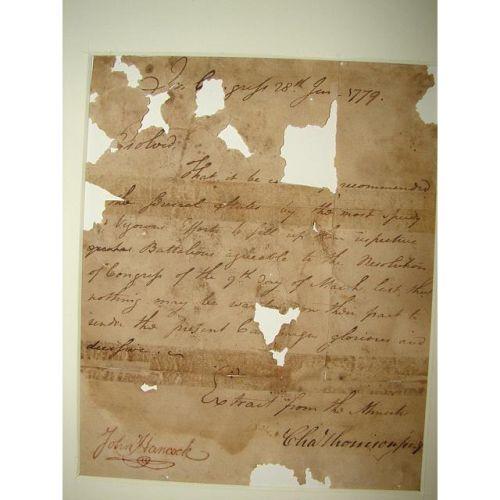 In Congress 28th Jan 1779.
esolved
That it be recommended
the several States by the most speedy
Vigorous Efforts to fill up their respective
Battalions agreeable to the Resolution
of Congress of the 9th day of March last that
nothing may be wanting on their part to
render the present glorious and
decisive.
Extract from the Minutes
Cha Thomson secy
John Hancock